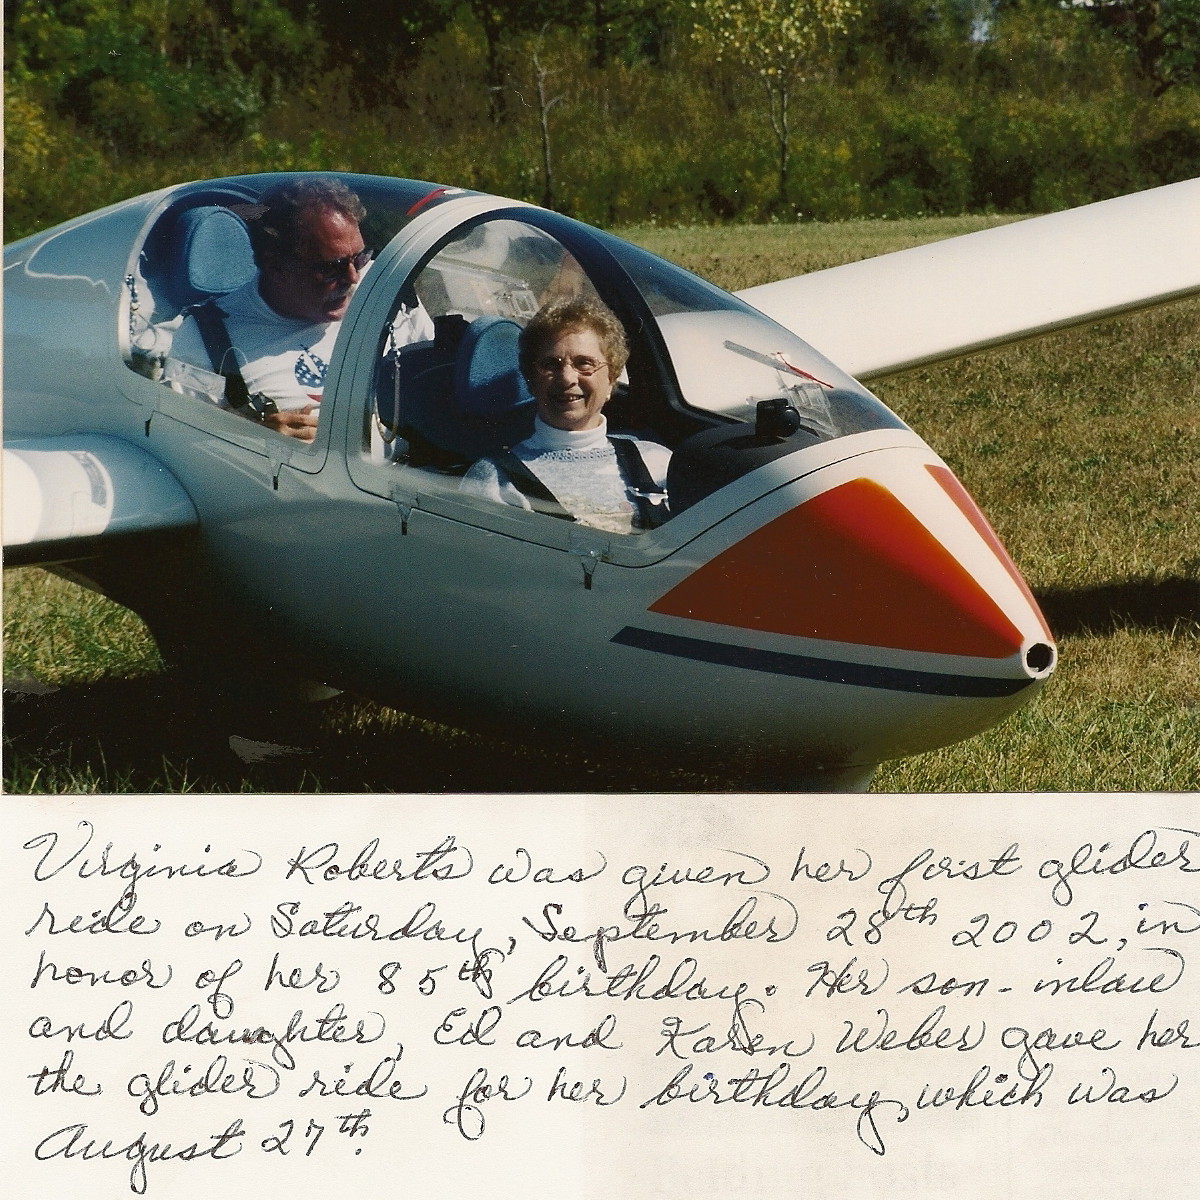 Virginia Roberts was given her first glider
ride on Saturday, September 28th 2002, in
honor of her 85th birthday. Her son-inlaw
and daughter, Ed and Karen Weber gave her
the glider ride for her birthday, which was
August 27th.